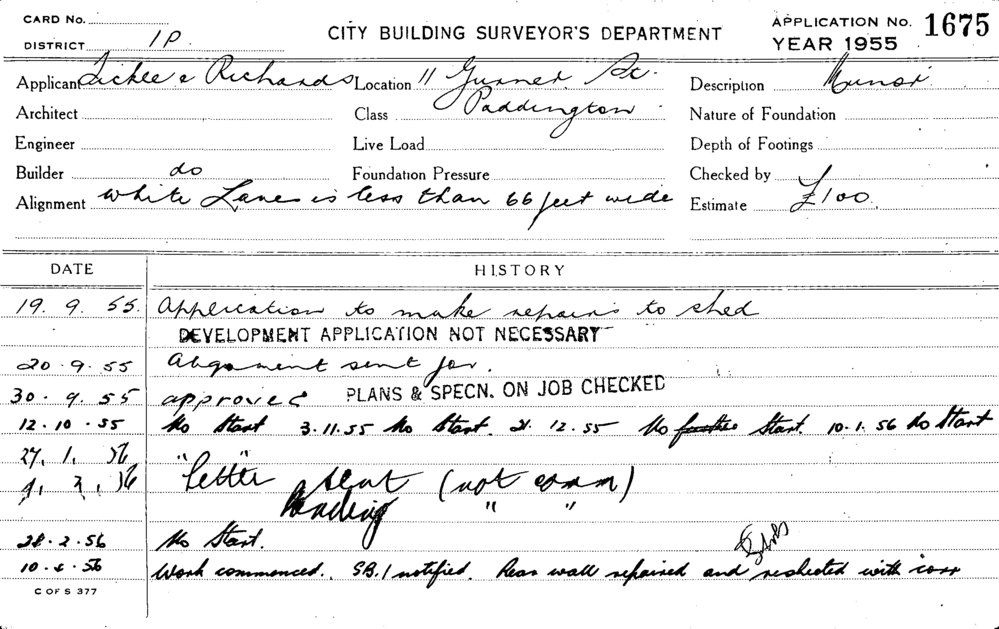 CARD No.
DISTRICT 1P.
CITY BUILDING SURVEYOR'S DEPARTMENT
APPLICATION No. 1675
YEAR 1955
Applicant Tickle & Richards Location 11 Gurner St. Description Minor
Architect Class Paddington Nature of Foundation
Engineer Live Load Depth of Footings
Builder do Foundation Pressure Checked by
Alignment White Lane is less than 66 feet wide Estimate £100.
DATE HISTORY
19. 9. 55. Application to make repairs to shed
DEVELOPMENT APPLICATION NOT NECESSARY
20.9.55 Alignment sent for.
30.9.55 approved PLANS & SPECN. ON JOB CHECKED
12.10.55 No Start 3.11.55 No Start. 21.12.55 No Start. 10.1.56 No Start
27.1.56 "Letter" sent (not comm)
Pending " "
28.2.56 No Start.
10.4.56 Work commenced. SB.1 notified. Rear wall repaired and resheeted with corr
C OF S 377